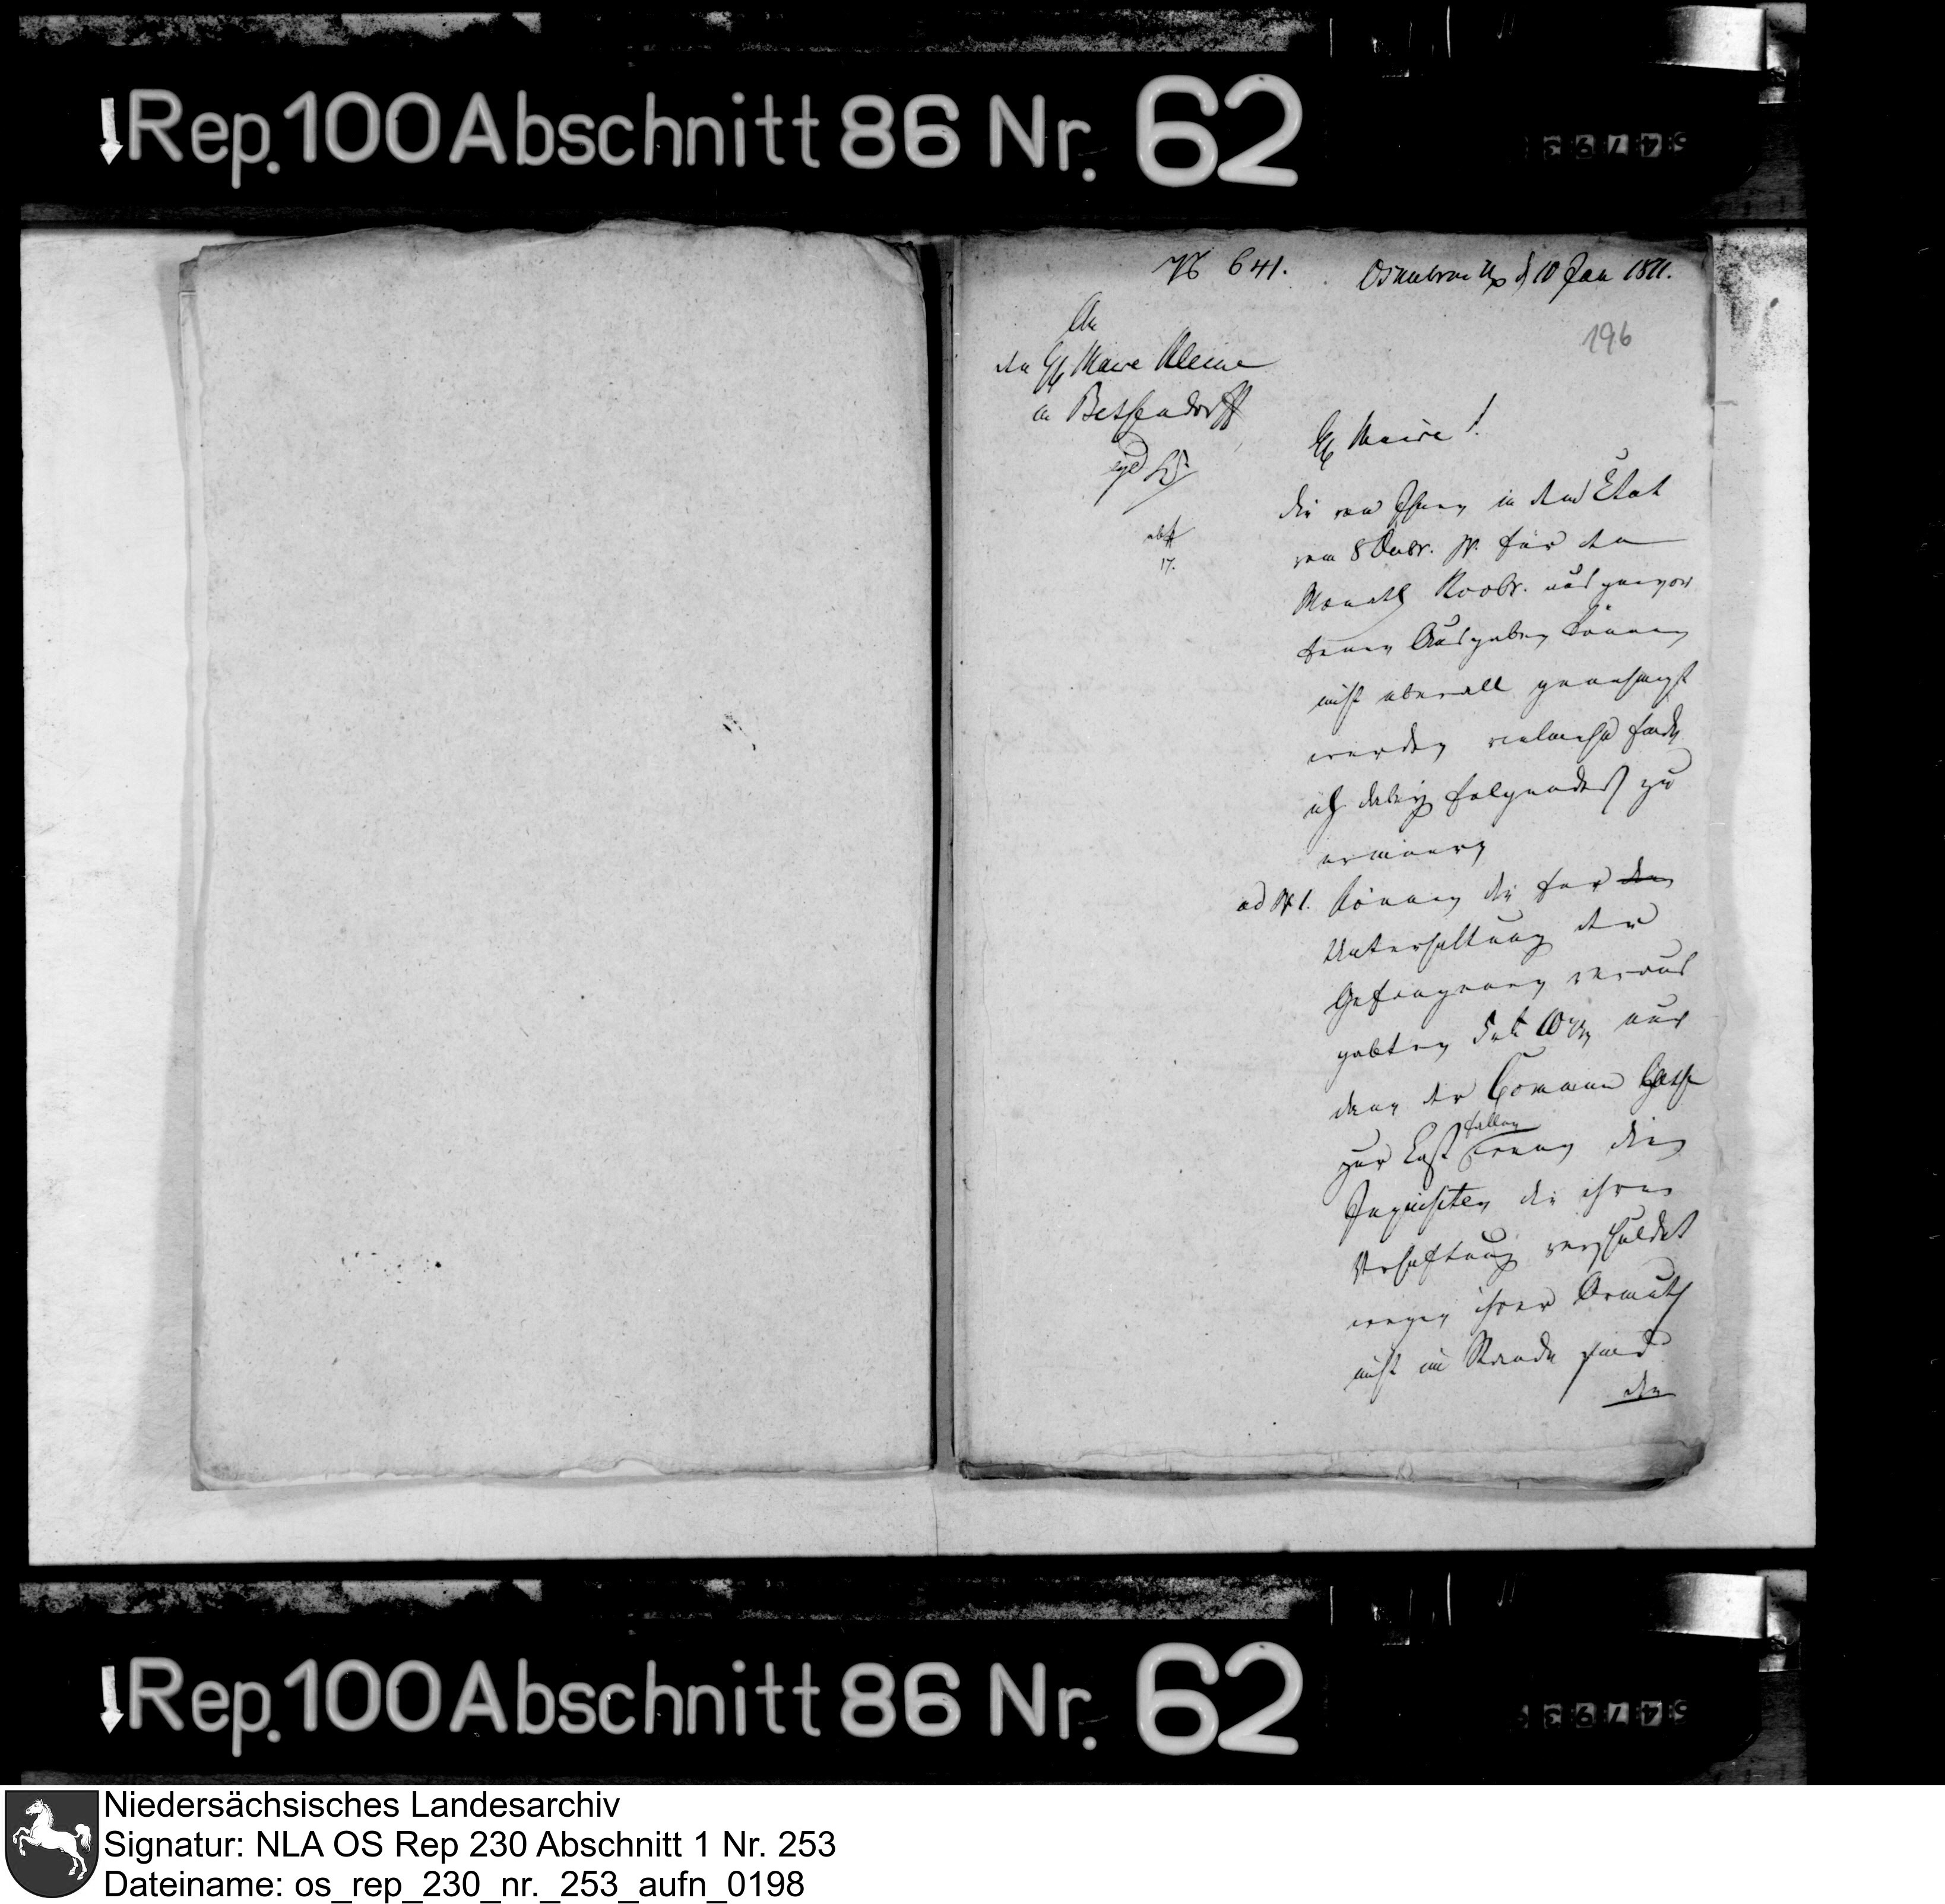 Rep. 100 Abschnitt 86 Nr. 62
No 641.
Osnabrück d 10 Jan 1811.
196
An
den H Maire Kleine
in Bessendorff
abss
17.
H Maire!
die von Ihnen in dem Etat
vom 8 Decbr. pr. für den
Monath Novbr. aufgewor
fenen Ausgaben können
nicht überall genehmigt
werden vielmehr finde
ich dabey folgendes zu
erinnern
ad No 1. Können die für den
Unterhaltung der
Gefangenen veraus
gabten 5 rt 10 nur
dann der Commun Casse
zur Last fallen wenn die
Inquisiten die ihre
Verhaftung verschuldet
wegen ihrer Armuth
nicht im Stande sind
die
Rep. 100 Abschnitt 86 Nr. 62
Niedersächsisches Landesarchiv
Signatur: NLA OS Rep 230 Abschnitt 1 Nr. 253
Dateiname: os_rep_230_nr._253_aufn_0198